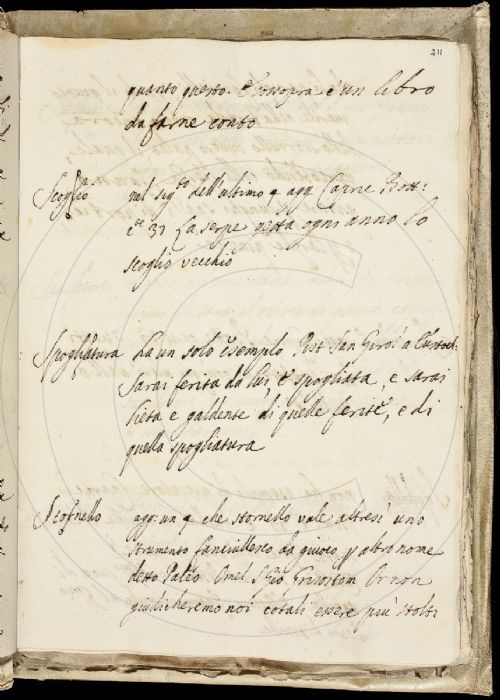 211
quanto questo. e l'opra è un libro
da farne conto
Scoglio nel sig.to dell'ultimo § agg. Carne Bott:
c.a 31 La serpe getta ogni anno lo
scoglio vecchio
Spogliatura ha un solo esempio Pist San Girol a Eustoch.
Sarai ferita da lui, e spogliata, e sarai
lieta e galdente di quelle ferite, e di
quella spogliatura
Stornello agg: un § che stornello vale altresi uno
strumento fanciullesco da giuoco p altro nome
detto Paleo Omel S Gio Grisostom Or non
giudicheremo noi cotali essere più stolti